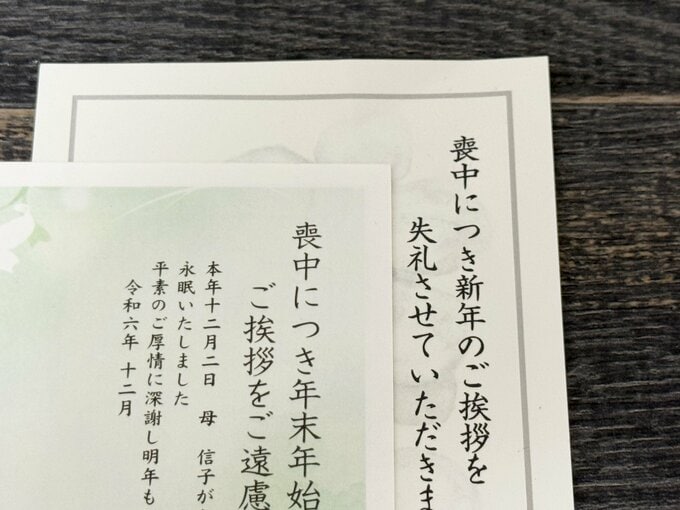 喪中につき新年のご挨拶を
失礼させていただきま
喪中につき年末年始
ご挨拶をご遠慮
本年十二月二日 母 信子が
永眠いたしました
平素のご厚情に深謝し明年も
令和六年 十二月